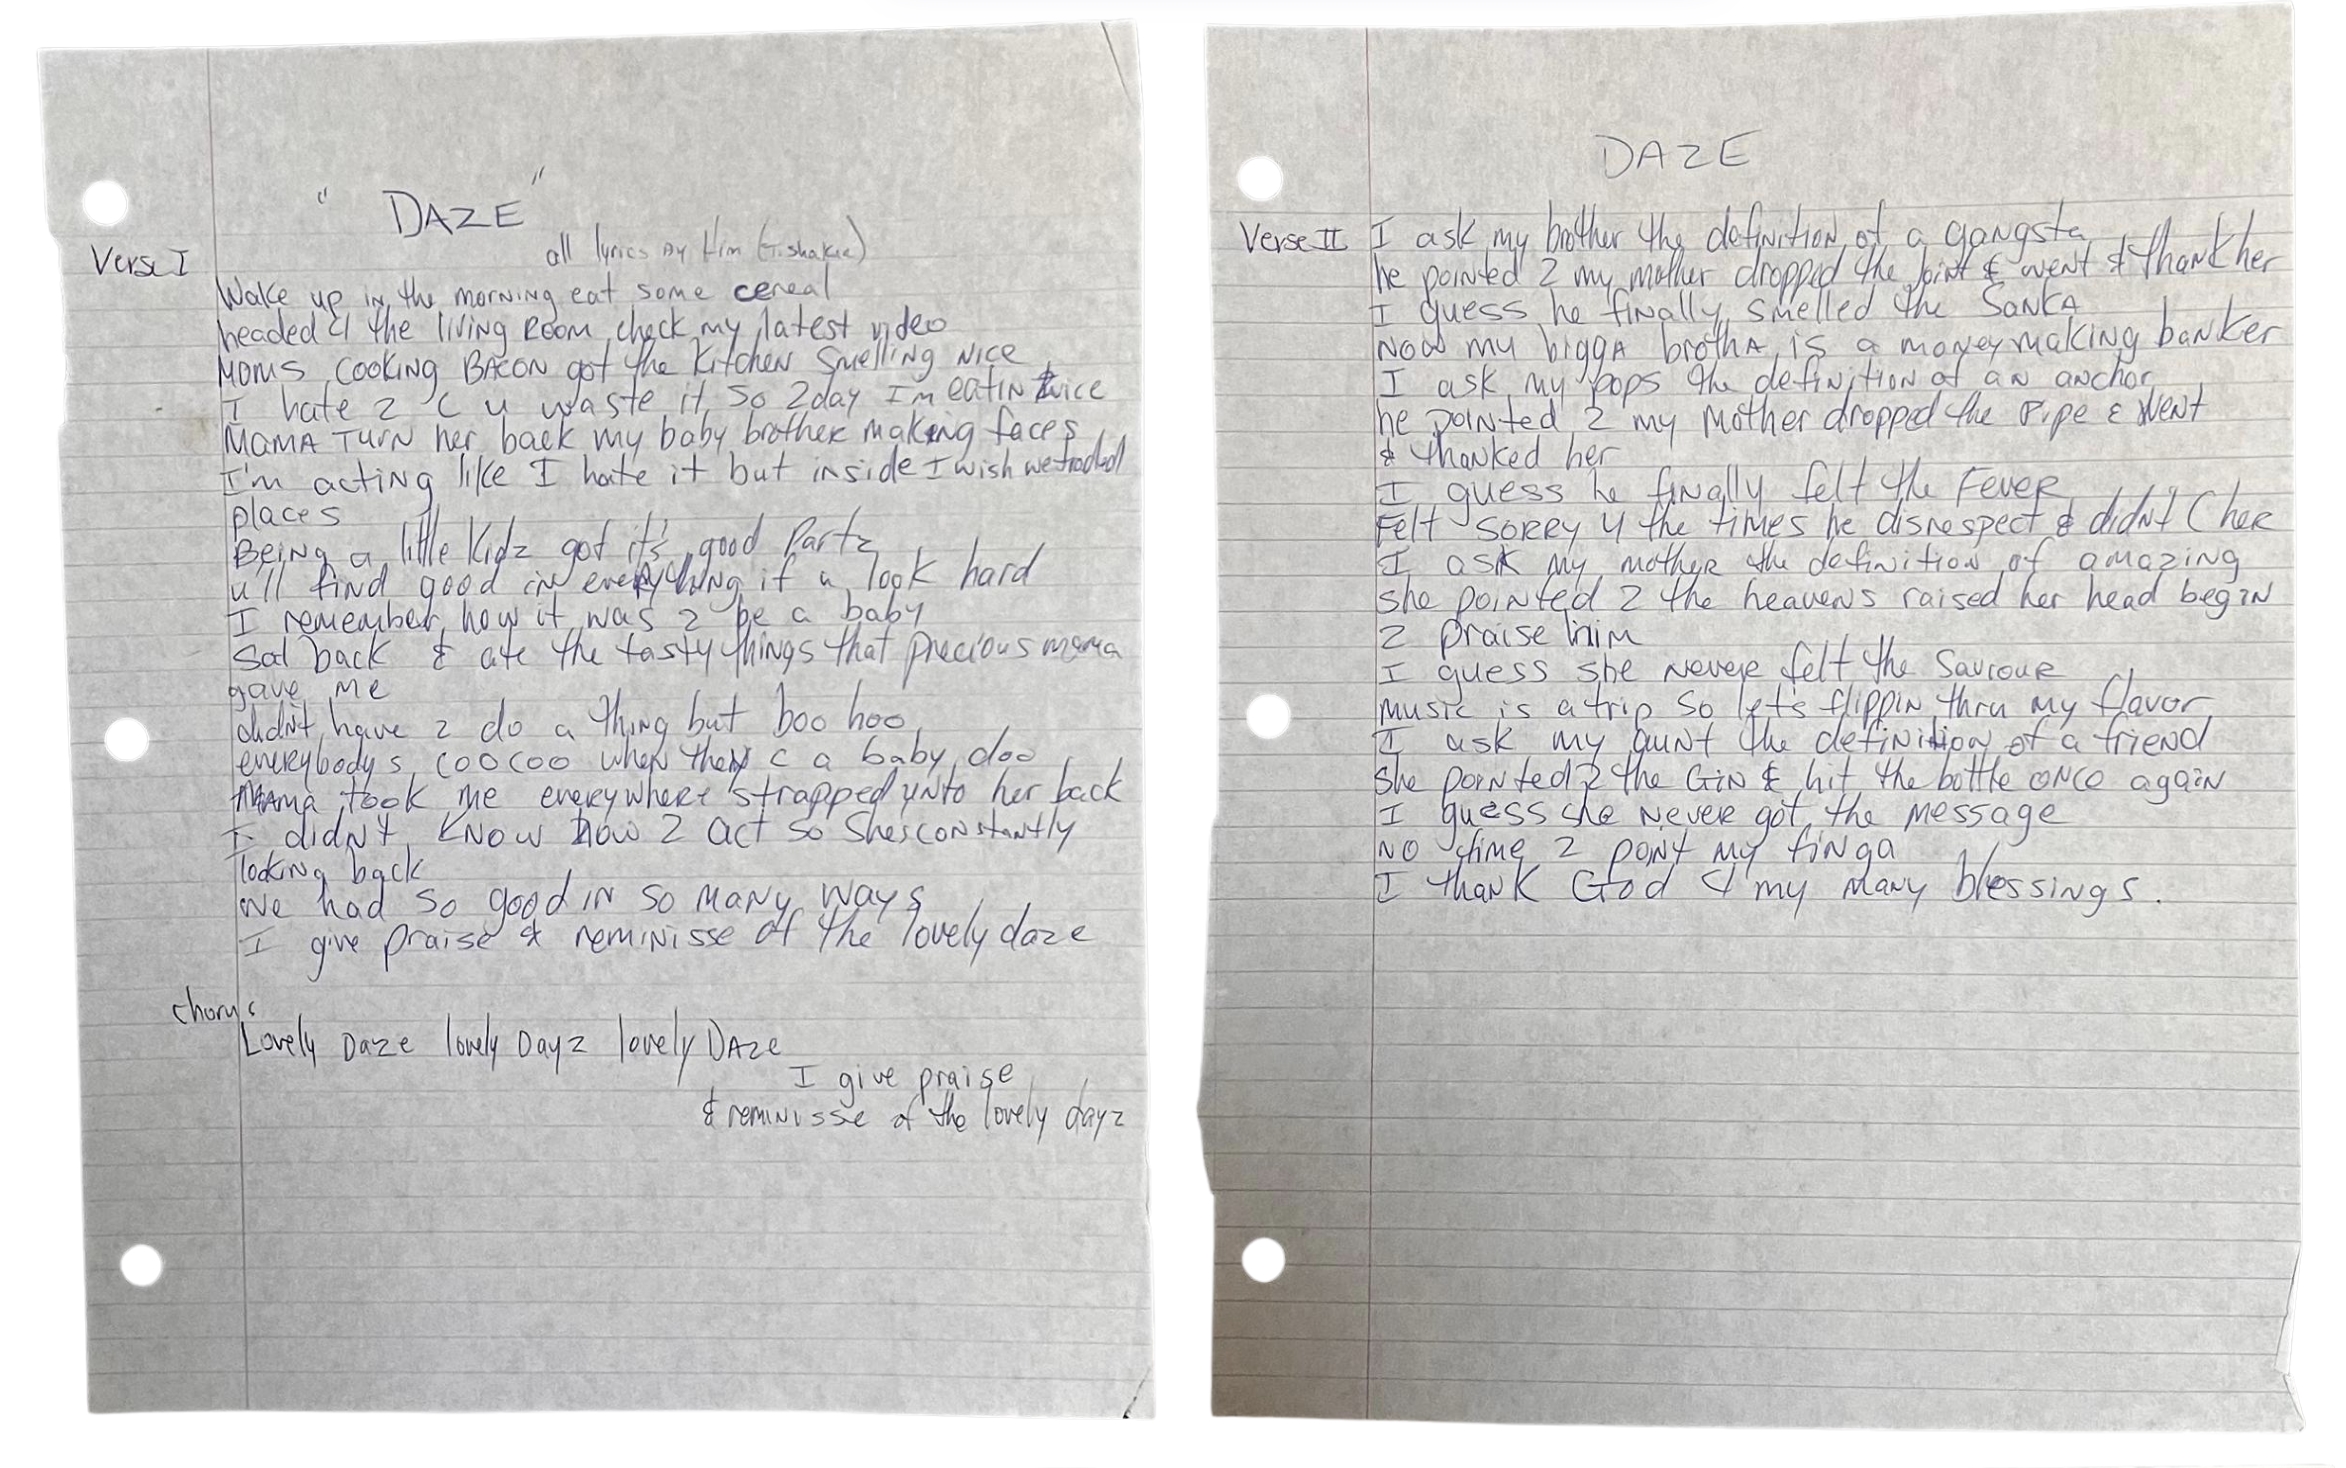 " DAZE "
all lyrics By Him
Verse I
Wake up in the morning eat some cereal
headed 4 the living Room check my latest video
Moms cooking BACON got the kitchen smelling nice
I hate 2 C u waste it so 2day I'm eatin twice
MAMA TURN her back my baby brother making faces
I'm acting like I hate it but inside I wish we traded
places
Being a little Kidz got it's good Partz
u'll find good in everything if u look hard
I remember how it was 2 be a baby
Sat back & ate the tasty things that precious mama
gave me
didn't have 2 do a thing but boo hoo
everybodys coocoo when they c a baby doo
MAMA took me everywhere strapped unto her back
I didn't know how 2 act so Shes constantly
looking back
We had so good in so many ways
I give praise & reminisse of the lovely daze
chorus
Lovely Daze lovely Dayz lovely Daze
I give praise
& reminisse of the lovely dayz
DAZE
Verse II
I ask my brother the definition of a gangsta
he pointed 2 my mother dropped the joint & went & thank her
I guess he finally smelled the SankA
Now my biggA brothA is a money making banker
I ask my pops the definition of an anchor
he pointed 2 my Mother dropped the Pipe & went
& thanked her
I guess he finally felt the Fever
Felt sorry 4 the times he disrespect & didn't C her
I ask my mother the definition of amazing
she pointed 2 the heavens raised her head begin
2 praise him
I guess she never felt the Saviour
music is a trip so let's flippin thru my flavor
I ask my aunt the definition of a friend
she pointed 2 the Gin & hit the bottle once again
I guess she never got the message
NO time 2 pont my finga
I thank God 4 my many blessings.